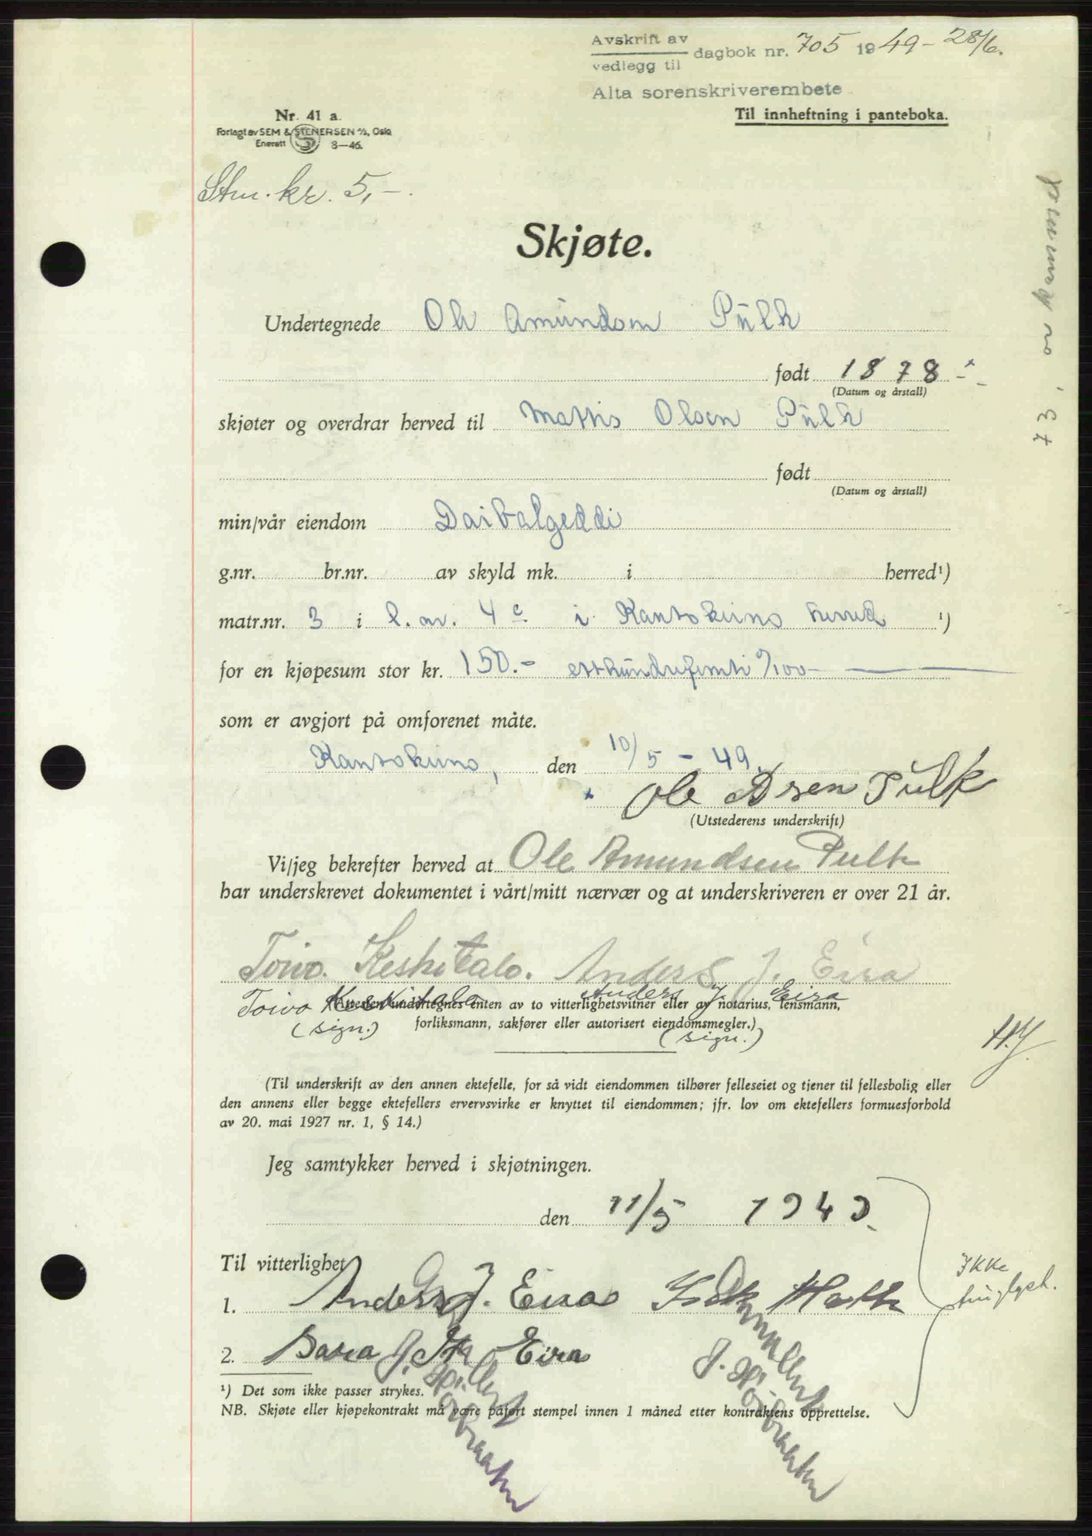 Avskrift av
vedlegg til
dagbok nr. 705 1949 - 28/6.
Alta sorenskriverembete
Til innheftning i panteboka.
Nr. 41 a.
Forlagt av SEM & STENERSEN A/S, Oslo
Enerett 8—46.
Stm. kr. 5,-.
Skjøte.
Undertegnede Ole Amundsen Pulk
født 1878
(Datum og årstall)
skjøter og overdrar herved til Mattis Olsen Pulk
født
(Datum og årstall)
min/vår eiendom Daibalgeddi
g.nr. br.nr. av skyld mk. i herred¹)
matr.nr. 3 i l. nr. 4 c. i Kautokeino herred ¹)
for en kjøpesum stor kr. 150.- etthundreogfemti 0/100
som er avgjort på omforenet måte.
Kautokeino, den 10/5 - 49.
Ole Pulk
(Utstederens underskrift)
Vi/jeg bekrefter herved at Ole Amundsen Pulk
har underskrevet dokumentet i vårt/mitt nærvær og at underskriveren er over 21 år.
Toivo Keskitalo. Anders J. Eira
Toivo Keskitalo Anders J. Eira
(Attesten undertegnes enten av to vitterlighetsvitner eller av notarius, lensmann,
(sign.) forliksmann, sakfører eller autorisert eiendomsmegler.)
(sign.)
H.J.
(Til underskrift av den annen ektefelle, for så vidt eiendommen tilhører felleseiet og tjener til fellesbolig eller
den annens eller begge ektefellers ervervsvirke er knyttet til eiendommen; jfr. lov om ektefellers formuesforhold
av 20. mai 1927 nr. 1, § 14.)
Jeg samtykker herved i skjøtningen.
den 11/5 1949.
Til vitterlighet
1. Anders J. Eira
2. Sara Eira
Ikke
tinglyst.
¹) Det som ikke passer strykes.
NB. Skjøte eller kjøpekontrakt må være påført stempel innen 1 måned etter kontraktens opprettelse.